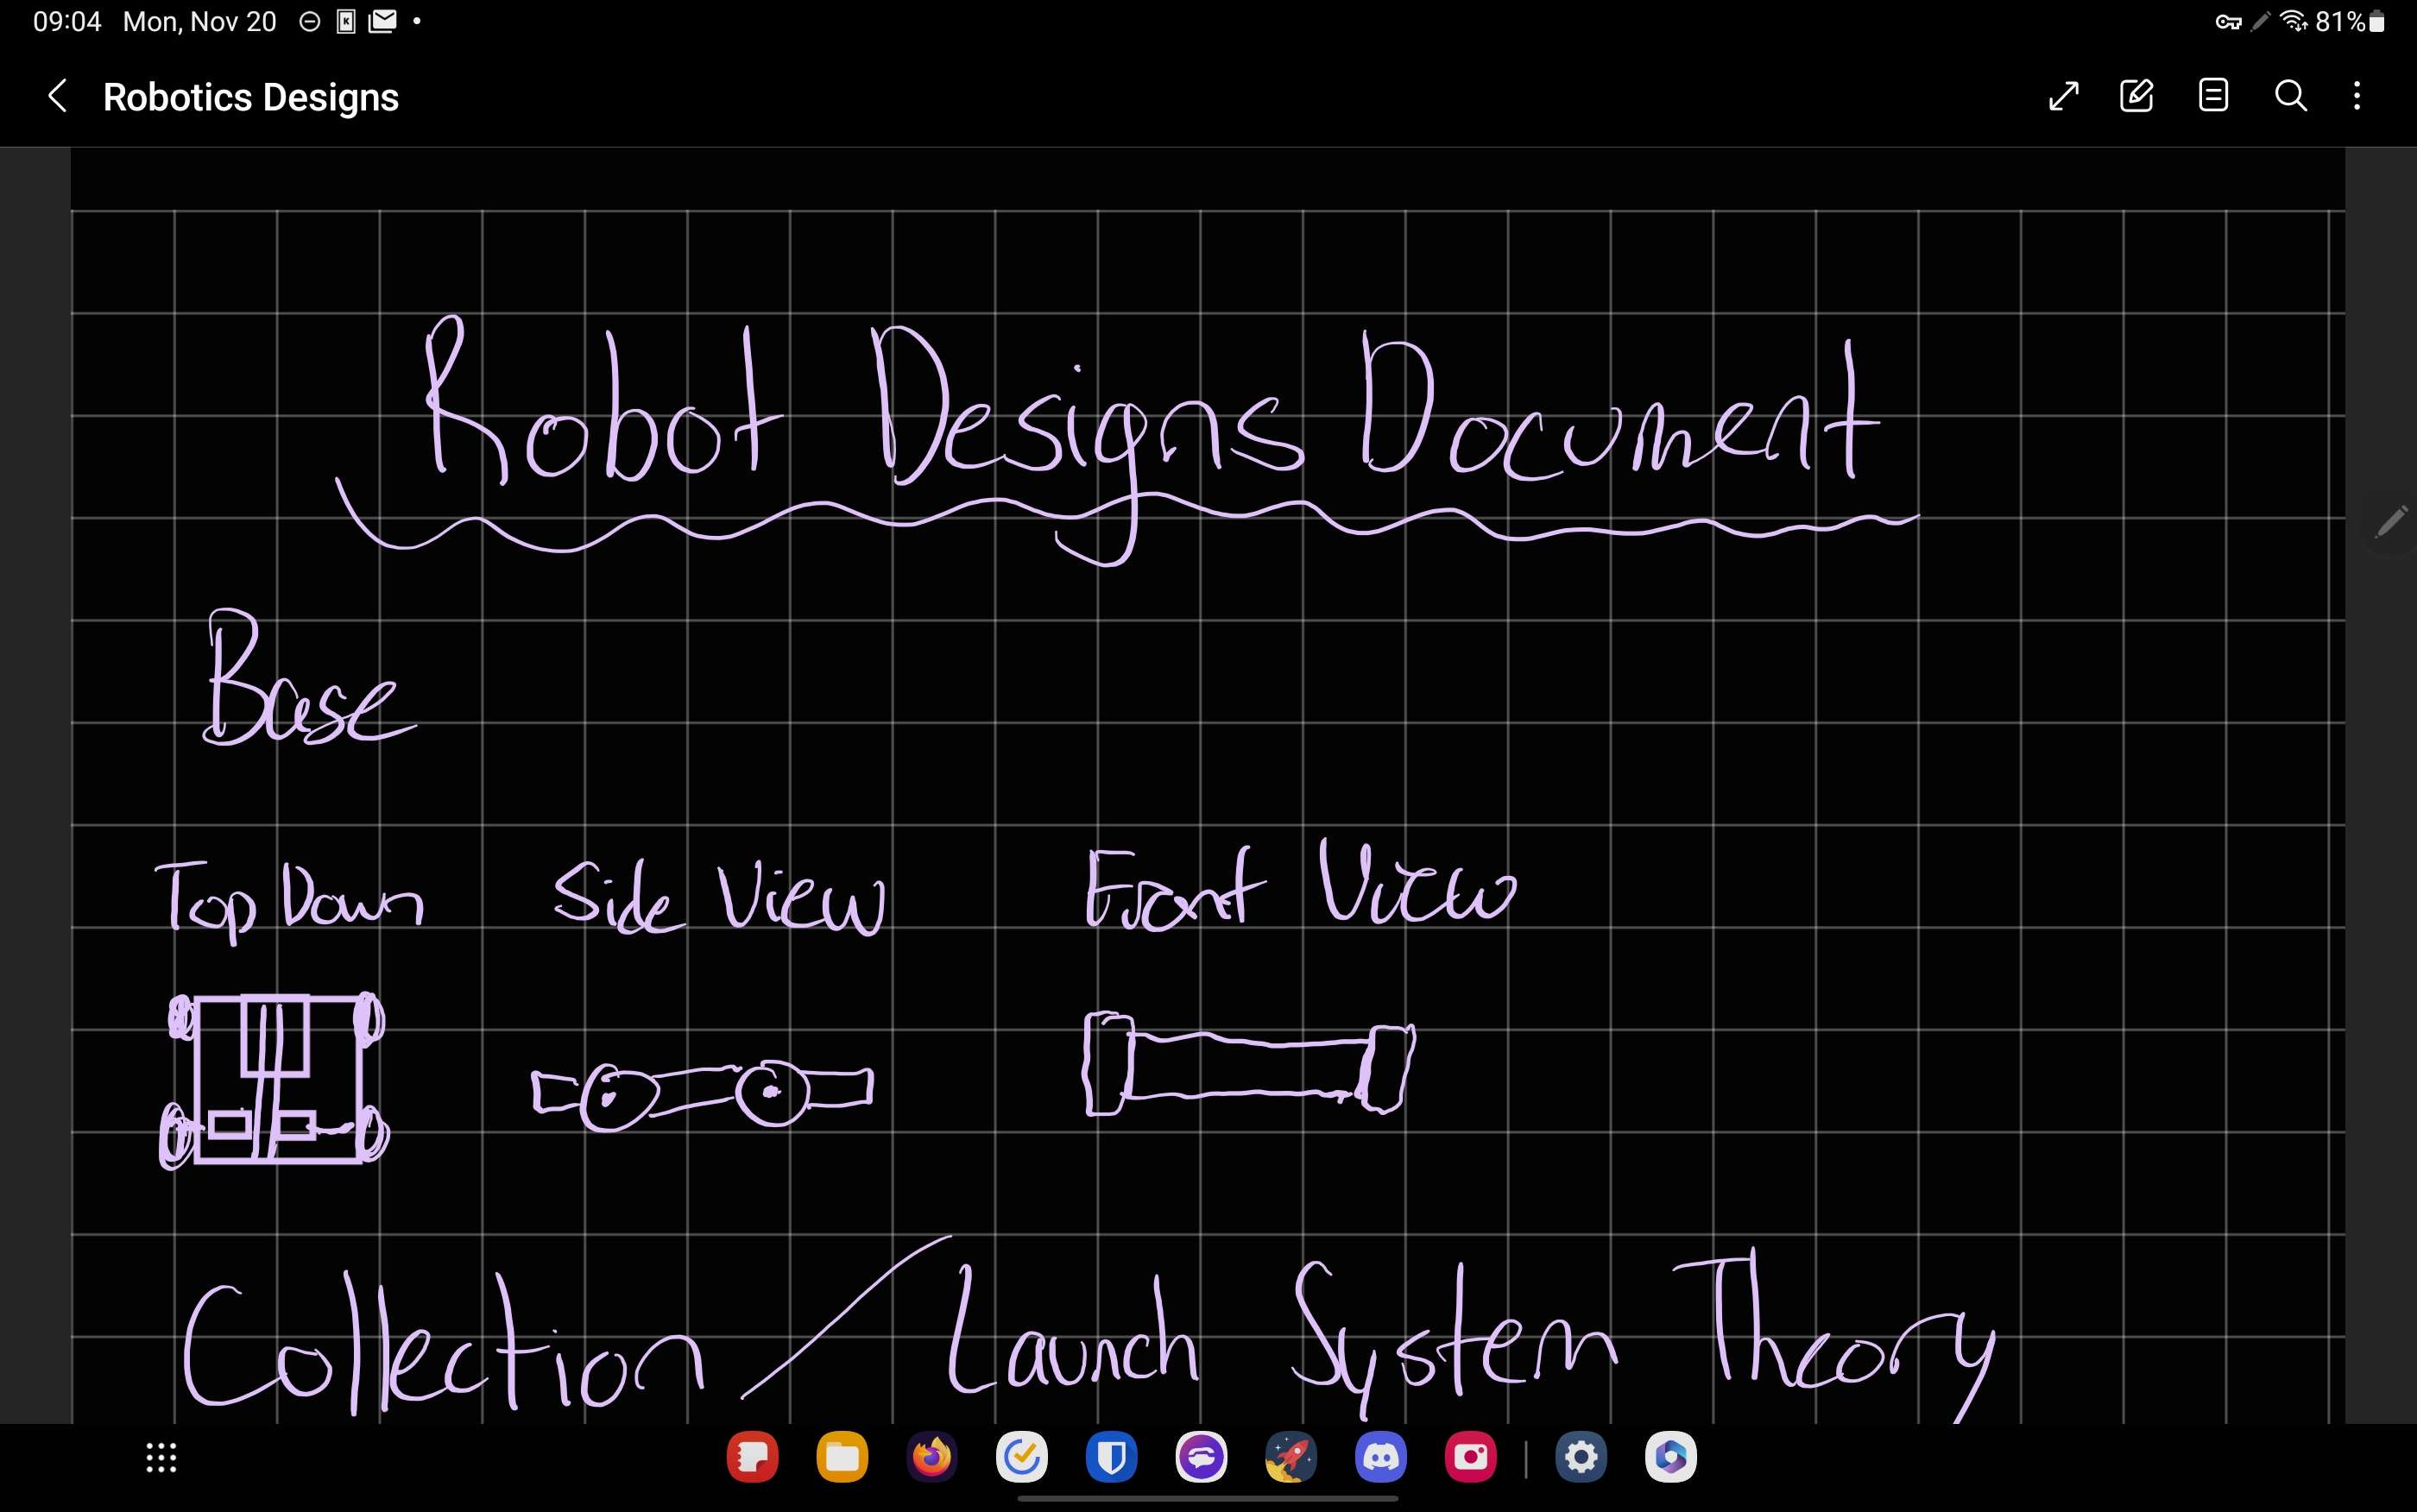 09:04 Mon, Nov 20 81%
Robotics Designs
Robot Designs Document
Base
Top Down Side View Front View
Collection / Launch System Theory